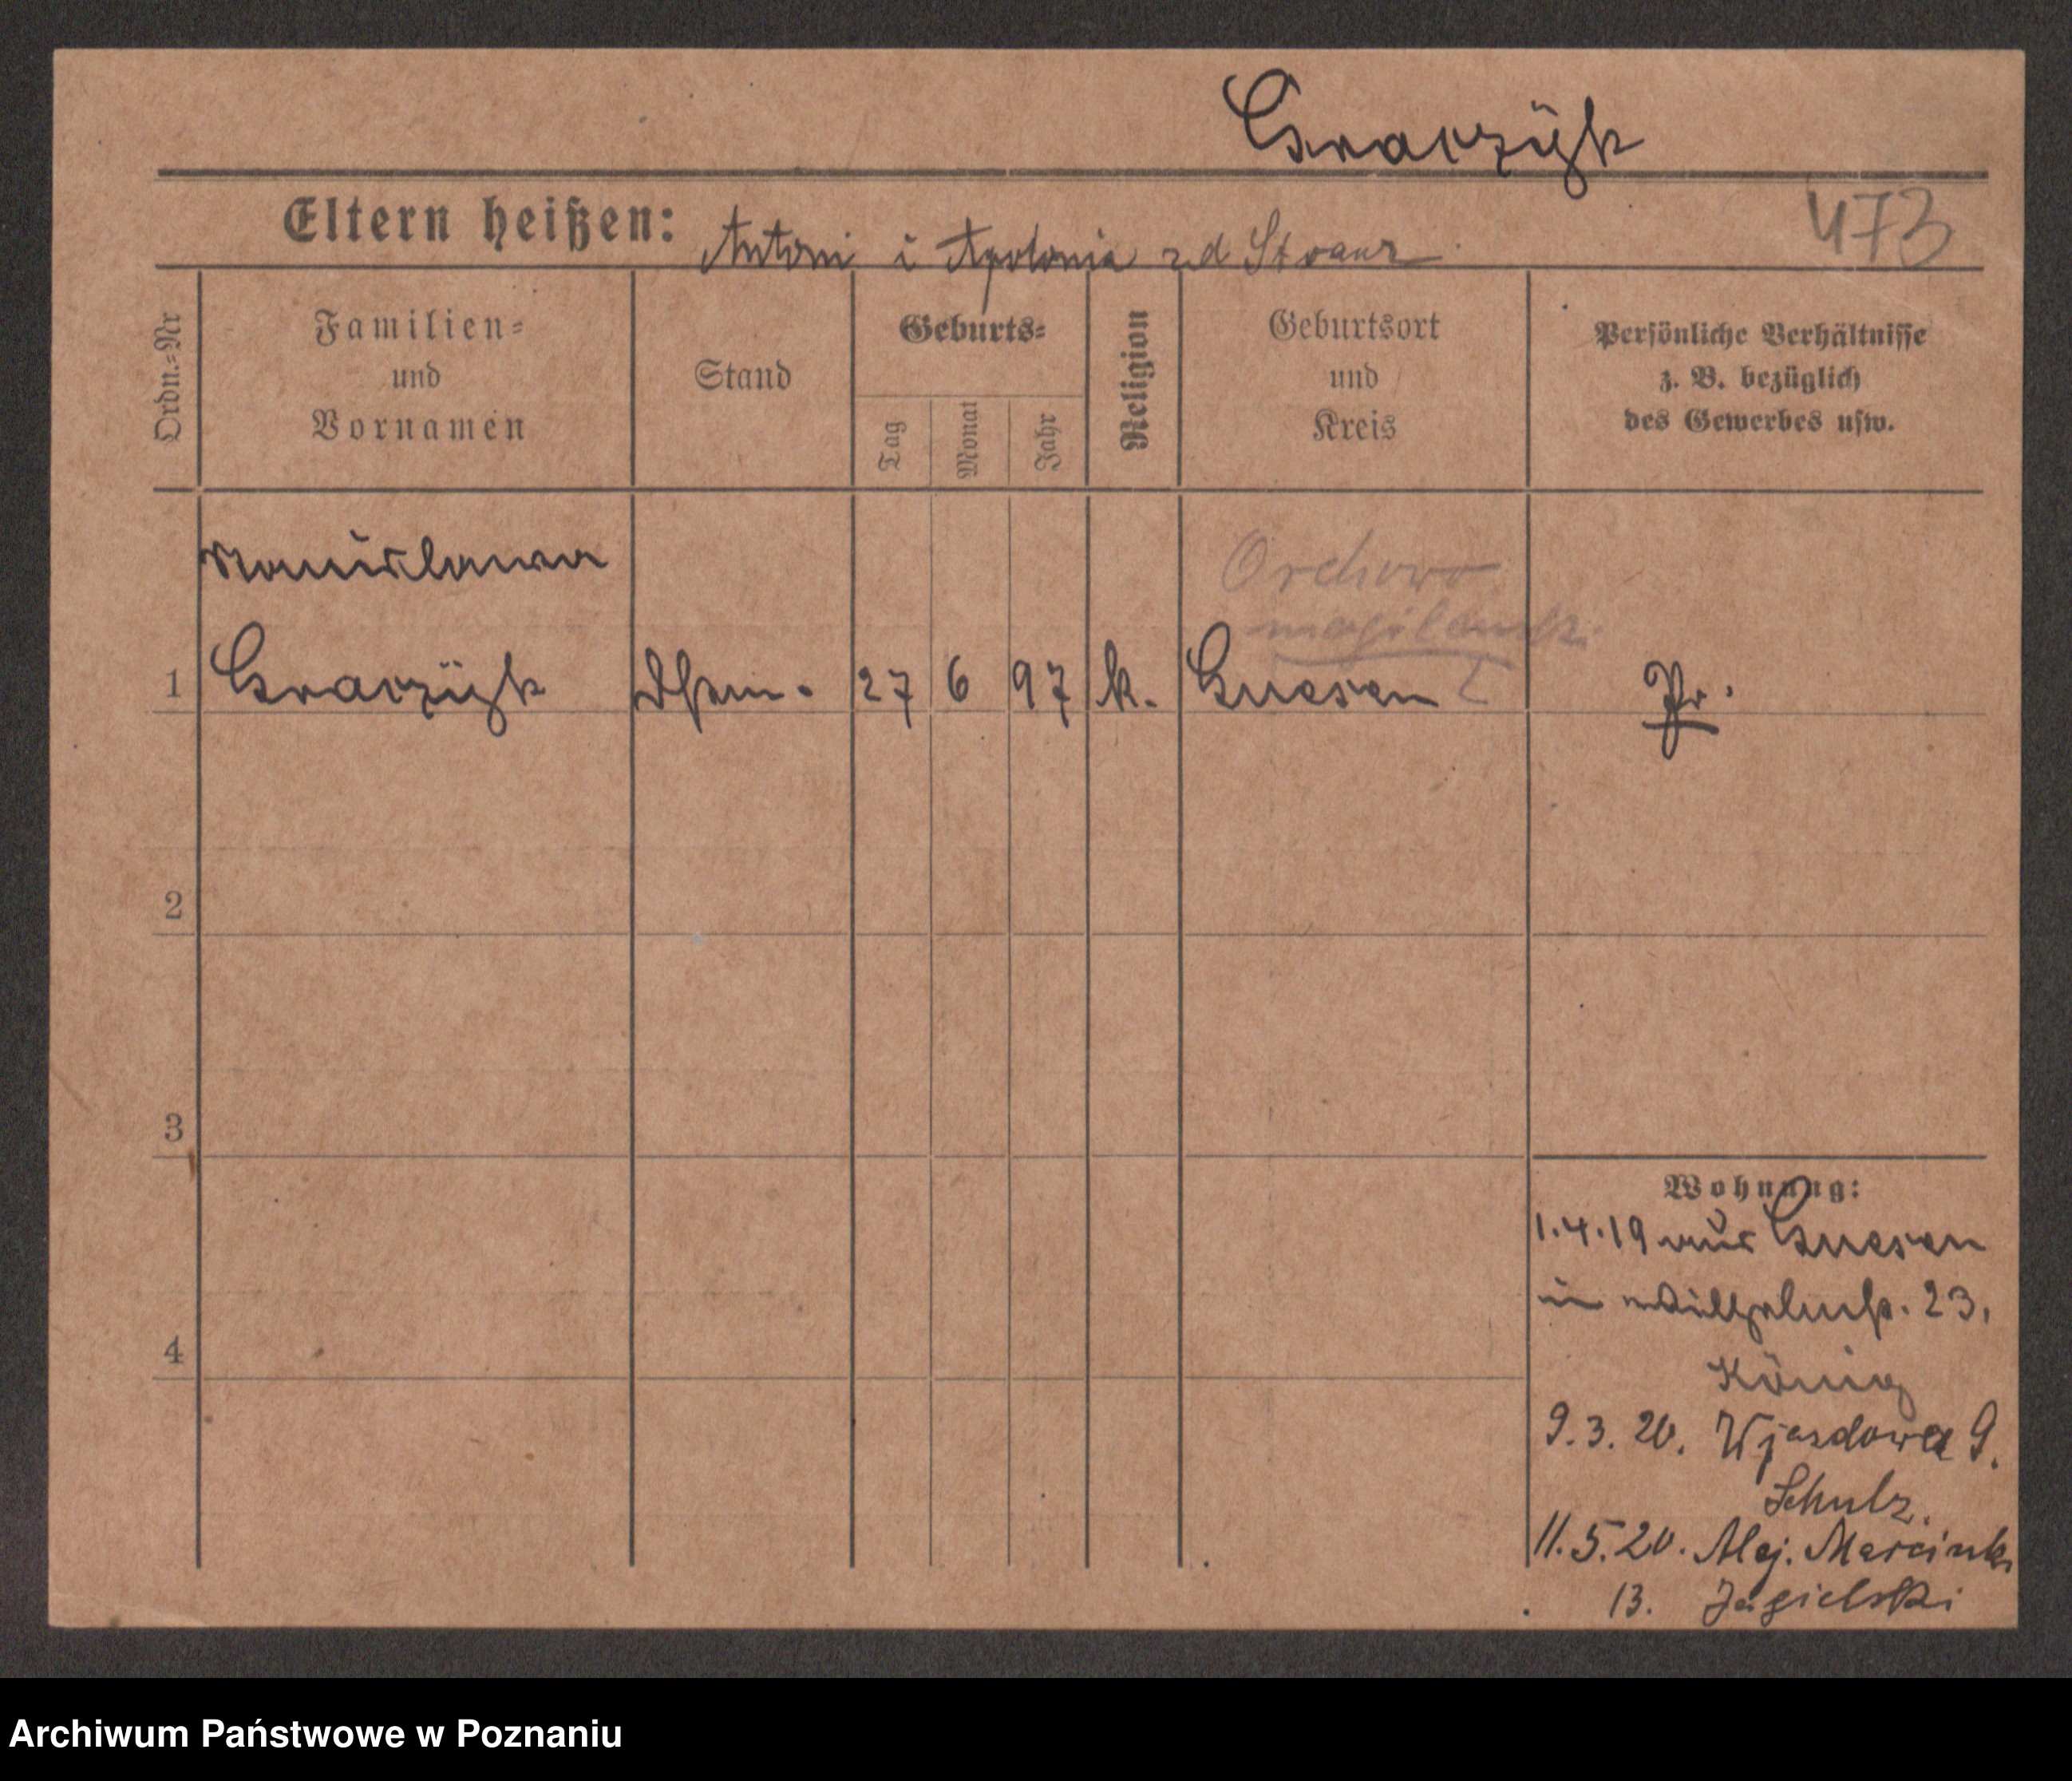 Graczÿk
Eltern heißen: Antoni i Apolonia zd
473
Ordn.=Nr
Familien=
und
Vornamen
Stand
Geburts=
Tag
Monat
Jahr
Religion
Geburtsort
und
Kreis
Persönliche Verhältnisse
z. B. bezüglich
des Gewerbes usw.
Orchowo
1 Graczÿk 27 6 97 k. Gnesen Pr.
2
3
4
Wohnung:
1.4.19 aus Gnesen
in Wilhelmstr. 23.
König
9.3.20. Wjazdowa 9.
Schulz.
11.5.20. Alej. Marcink
13. Jagielski
Archiwum Państwowe w Poznaniu